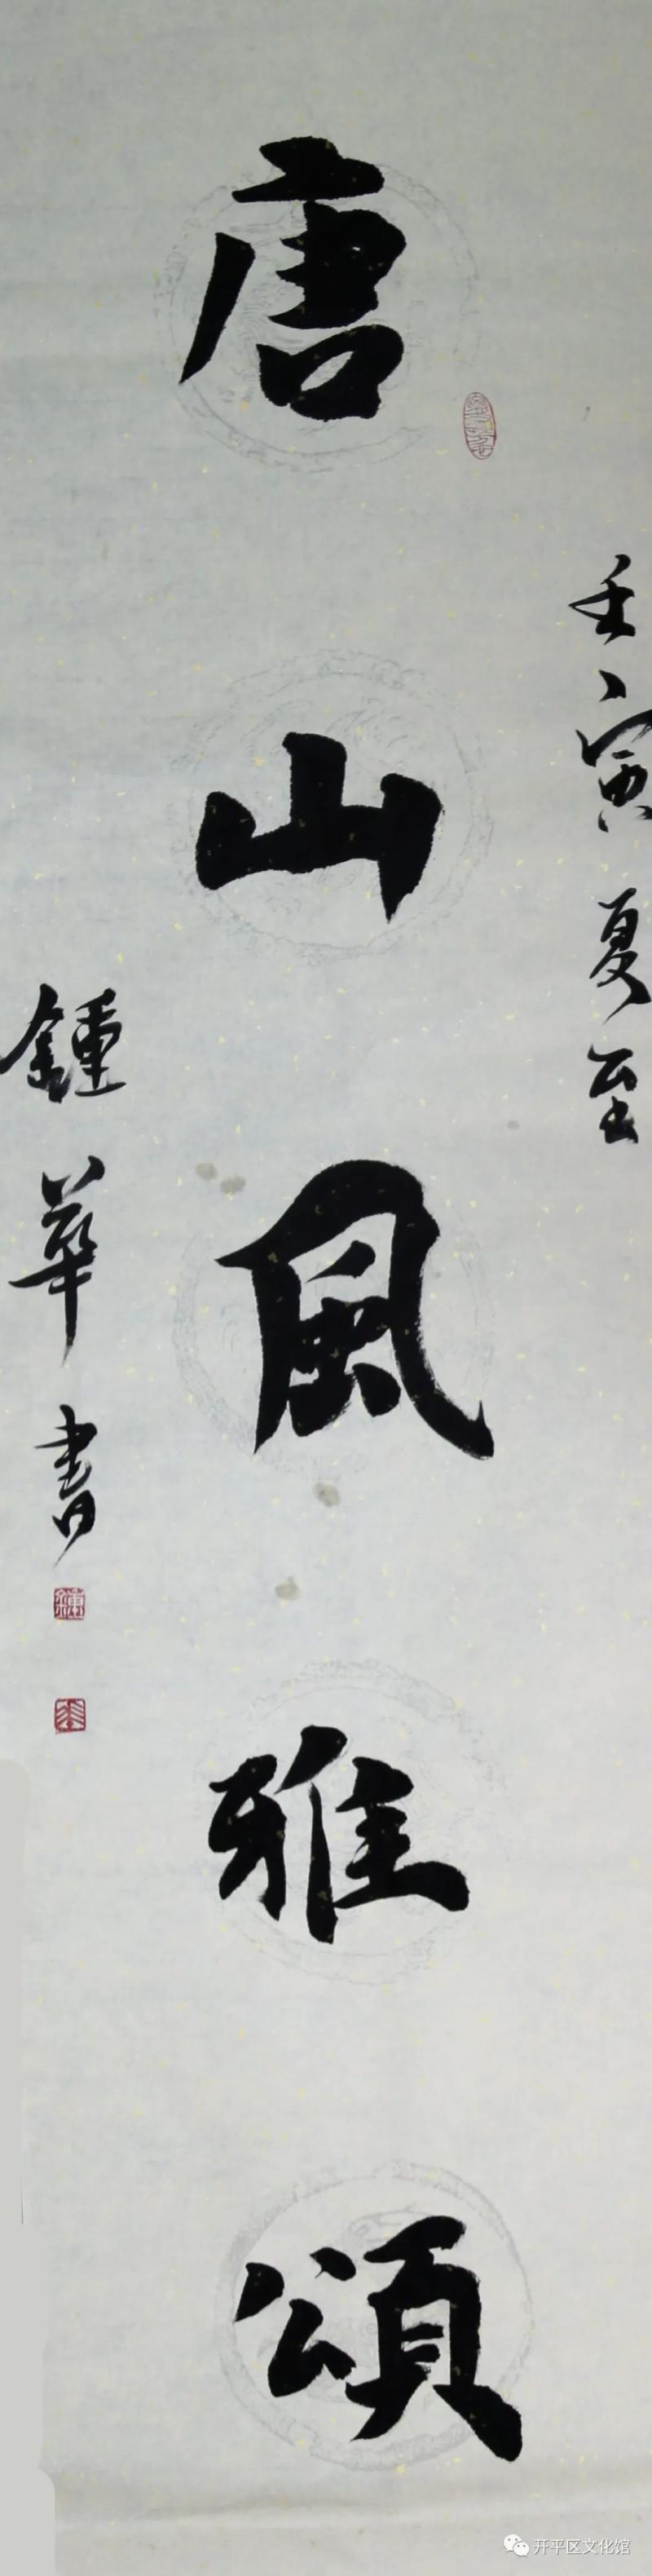 壬寅夏至
唐山風雅頌
鍾華書
鍾
華
开平区文化馆